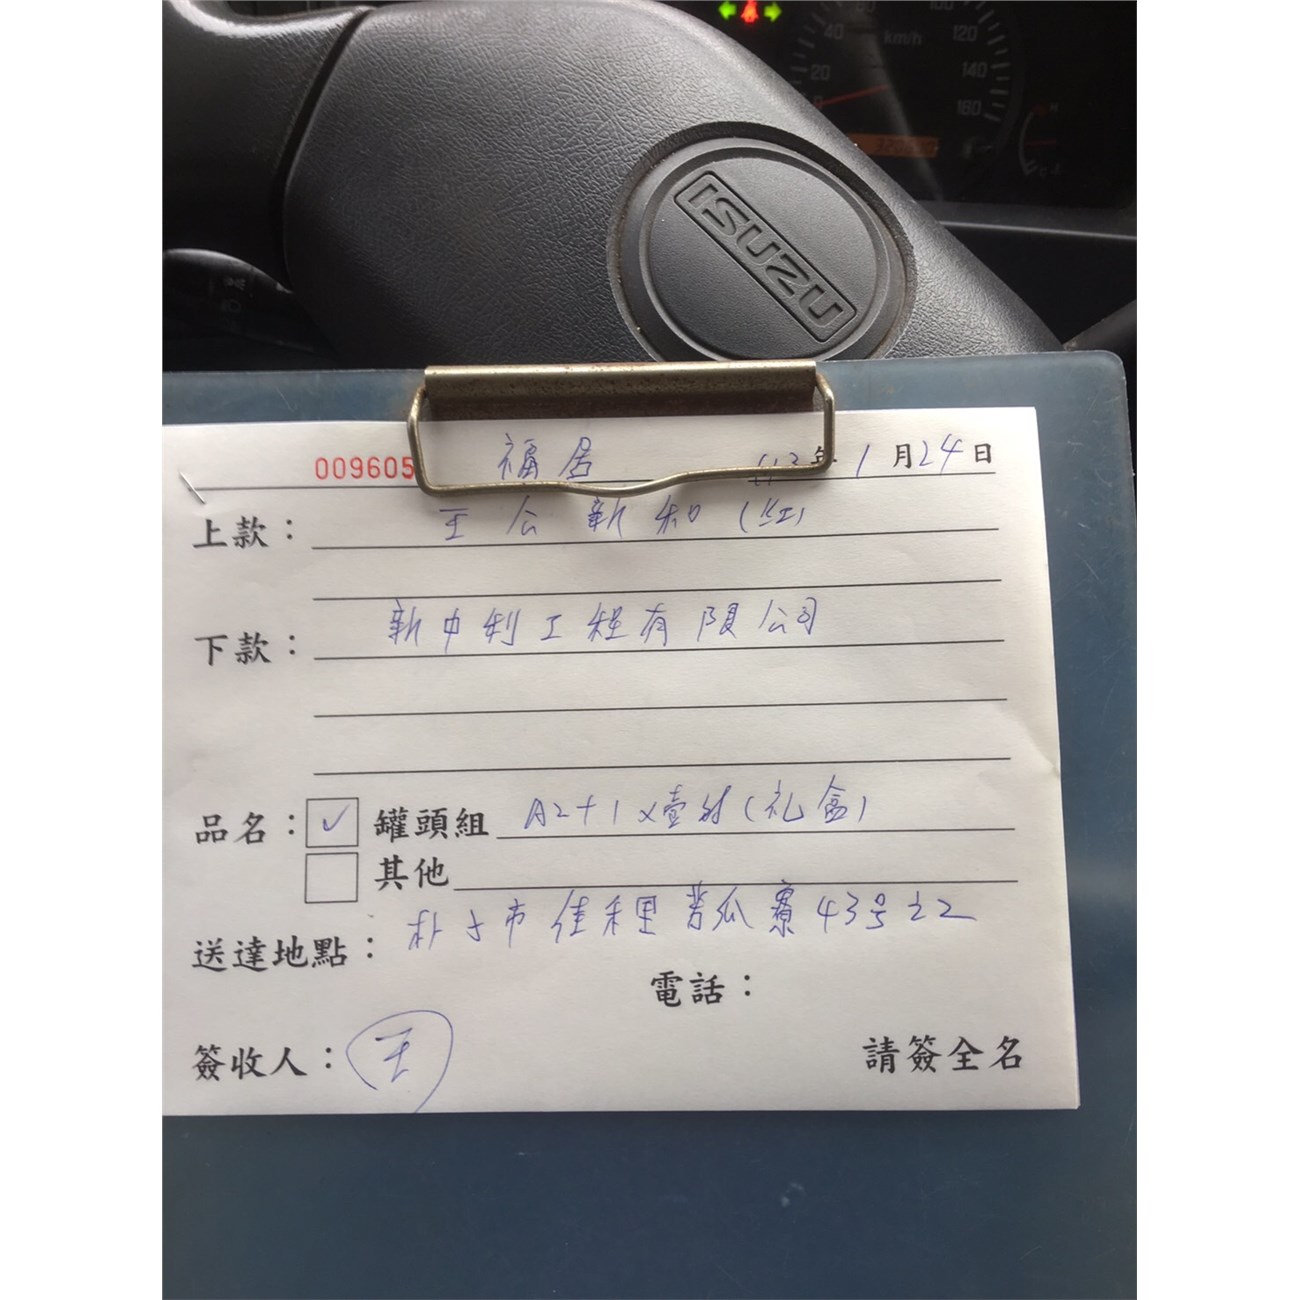 40
60
100
120
km/h
20
140
0
160
ISUZU
009605 福居 113年1月24日
上款： 王公新和(紅)
下款： 新中利工程有限公司
品名： ✓ 罐頭組 A2+1x壹对(礼盒)
其他
送達地點： 朴子市佳禾里苦瓜寮43号之2
電話：
簽收人： 王 請簽全名